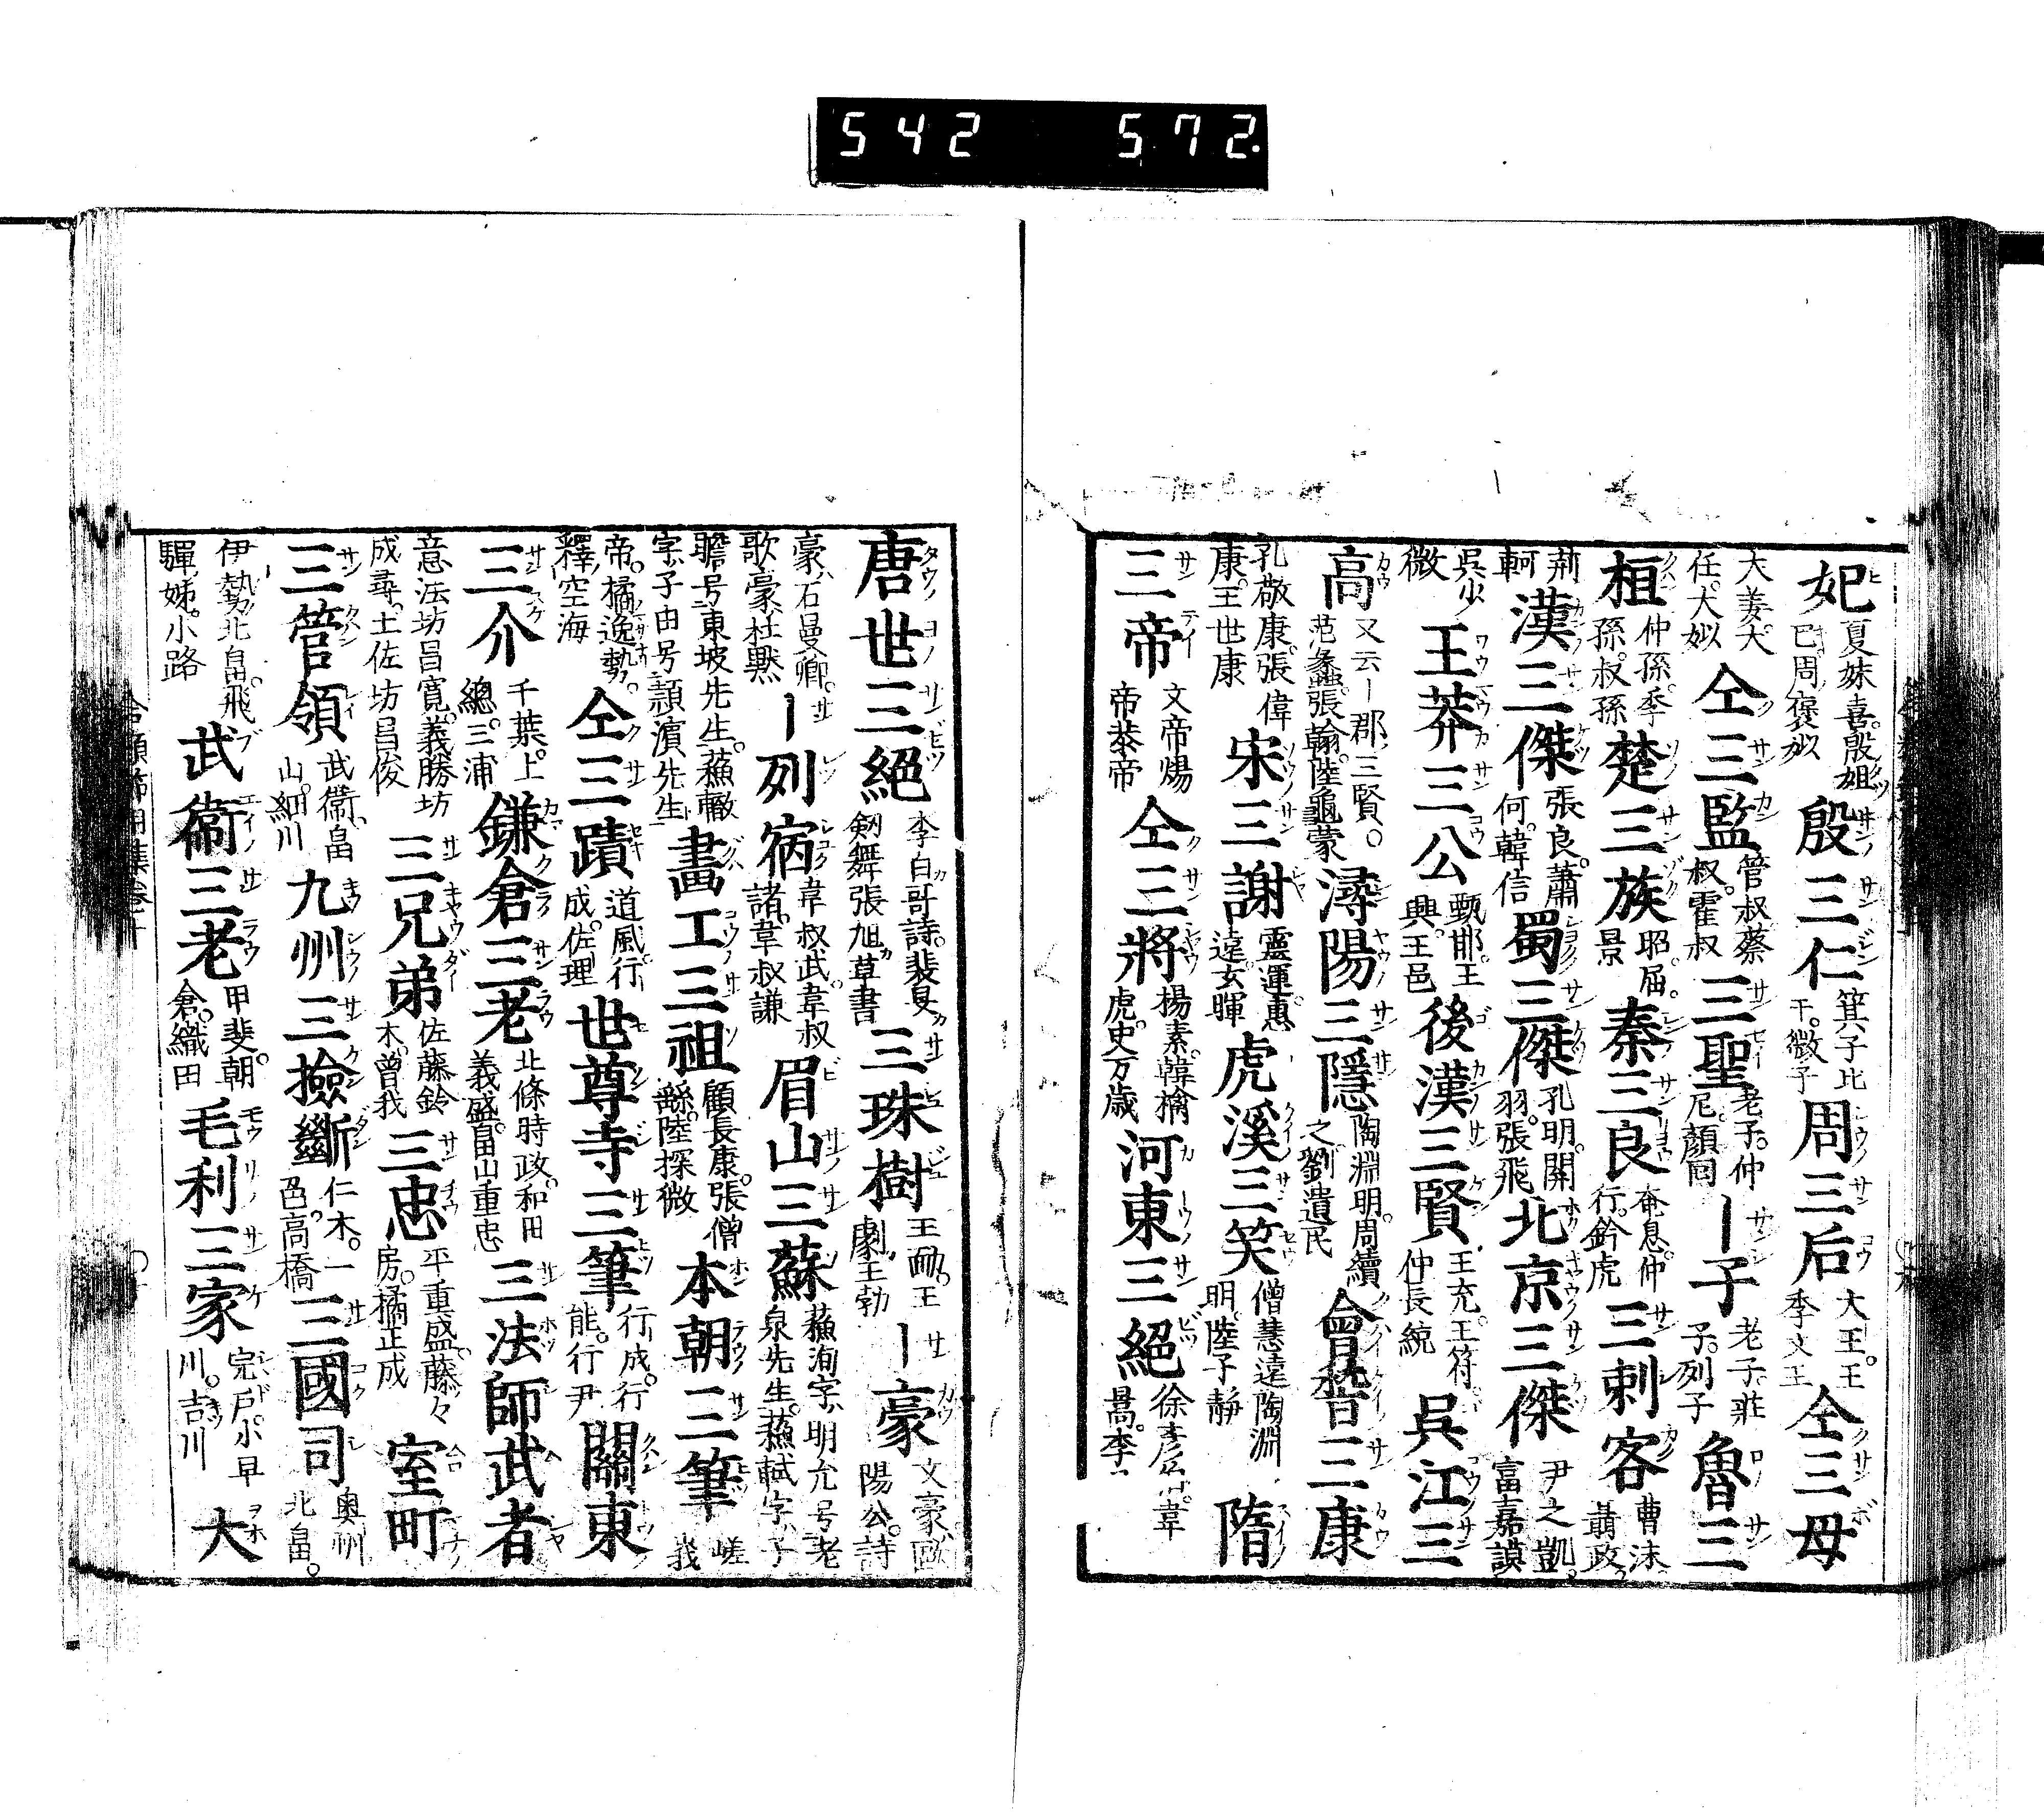 542 572.
妃 夏妹喜。殷妲己。周褒姒 殷三仁 箕子比干。微子 周三后 大王。王季文王 仝三母
大姜。大任。大姒 仝三監 管叔蔡叔。霍叔 三聖 老子。仲尼。顔回 ー子 老子。莊子。列子 魯三
桓 仲孫。季孫。叔孫 楚三族 昭。屈。景 秦三良 奄息。仲行。鈐虎 三刺客 曹沫。聶政。
荊軻 漢三傑 張良。蕭何。韓信 蜀三傑 孔明。關羽。張飛 北京三傑 尹之凱。富嘉謨
呉少微 王莽三公 甄邯。王興。王邑 後漢三賢 王充。王符。仲長統 呉江三
高 又云ー郡ノ三賢。范蠡。張翰。陸龜蒙 潯陽三隱 陶淵明。周續之。劉遺民 會稽三康
孔敬康。張偉康。王世康 宋三謝 靈運。惠連。玄暉 虎溪三笑 僧慧遠。陶淵明。陸子靜 隋
三帝 文帝煬帝恭帝 仝三將 楊素。韓擒虎。史万歳 河東三絕 徐彦。韋暠。李一
唐世三絕 李白哥詩。裴旻劔舞張旭草書 三珠樹 王勔。王勮。王勃 ー豪 文豪歐陽公。詩
豪石曼卿。歌豪杜黙 ー列宿 韋叔武。韋叔諸。韋叔謙 眉山三蘇 蘓洵字明允号老泉先生。蘓軾字子
瞻号東坡先生。蘓轍字子由号頴濱先生 畫工三祖 顧長康。張僧繇。陸探微 本朝三筆 嵯峩
帝。橘逸勢。釋空海 仝三蹟 道風。行成。佐理 世尊寺三筆 行成。行能。行尹 關東
三介 千葉。上總。三浦 鎌倉三老 北條時政。和田義盛。畠山重忠 三法師武者
意法坊昌寛。義勝坊成尋。土佐坊昌俊 三兄弟 佐藤鈴木。曽我 三忠 平重盛。藤々房。橘正成 室町
三管領 武衞。畠山。細川 九州三撿斷 仁木。一色。高橋 三國司 奥州北畠。
伊勢北畠。飛驒姊。小路 武衞三老 甲斐。朝倉。織田 毛利三家 宍戸。小早川。吉川 大